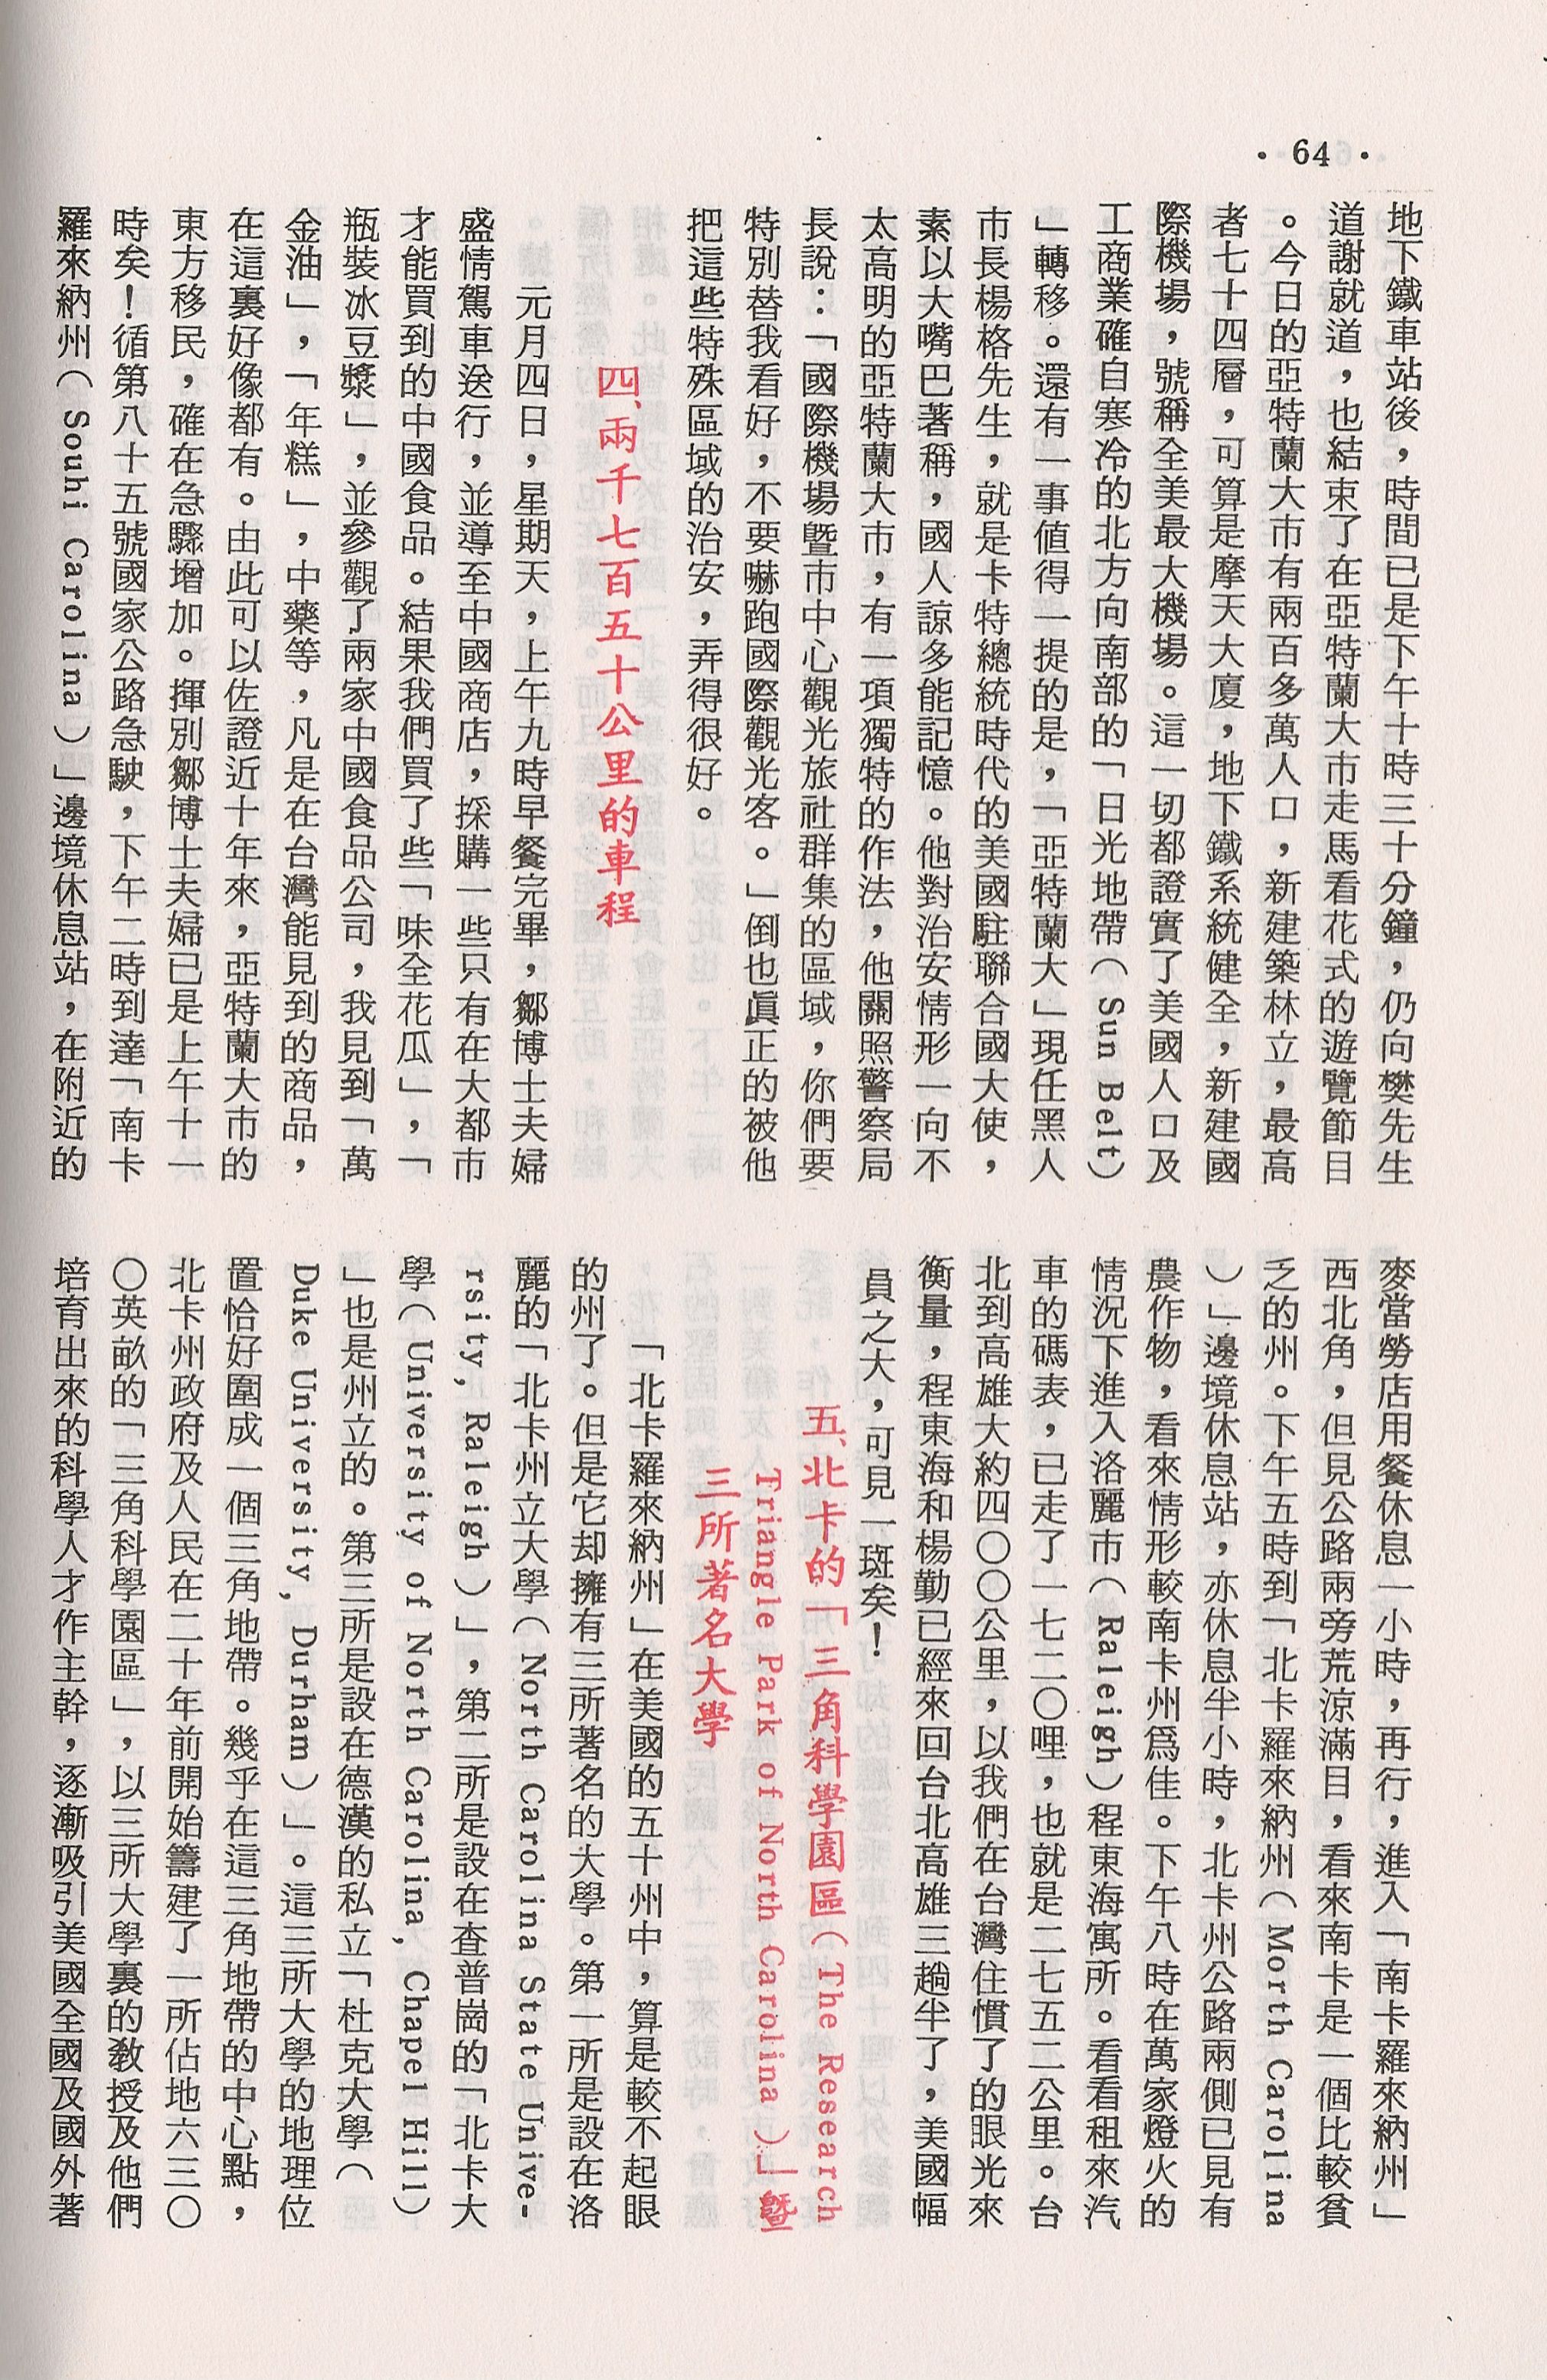 · 64 ·
地下鐵車站後，時間已是下午十時三十分鐘，仍向樊先生
道謝就道，也結束了在亞特蘭大市走馬看花式的遊覽節目
。今日的亞特蘭大市有兩百多萬人口，新建築林立，最高
者七十四層，可算是摩天大廈，地下鐵系統健全，新建國
際機場，號稱全美最大機場。這一切都證實了美國人口及
工商業確自寒冷的北方向南部的「日光地帶（Sun Belt）
」轉移。還有一事值得一提的是，「亞特蘭大」現任黑人
市長楊格先生，就是卡特總統時代的美國駐聯合國大使，
素以大嘴巴著稱，國人諒多能記憶。他對治安情形一向不
太高明的亞特蘭大市，有一項獨特的作法，他關照警察局
長說：「國際機場暨市中心觀光旅社群集的區域，你們要
特別替我看好，不要嚇跑國際觀光客。」倒也眞正的被他
把這些特殊區域的治安，弄得很好。
四、兩千七百五十公里的車程
元月四日，星期天，上午九時早餐完畢，鄒博士夫婦
盛情駕車送行，並導至中國商店，採購一些只有在大都市
才能買到的中國食品。結果我們買了些「味全花瓜」，「
瓶裝冰豆漿」，並參觀了兩家中國食品公司，我見到「萬
金油」，「年糕」，中藥等，凡是在台灣能見到的商品，
在這裏好像都有。由此可以佐證近十年來，亞特蘭大市的
東方移民，確在急驟增加。揮別鄒博士夫婦已是上午十一
時矣！循第八十五號國家公路急駛，下午二時到達「南卡
羅來納州（Souhi Carolina）」邊境休息站，在附近的
麥當勞店用餐休息一小時，再行，進入「南卡羅來納州」
西北角，但見公路兩旁荒涼滿目，看來南卡是一個比較貧
乏的州。下午五時到「北卡羅來納州（Morth Carolina
）」邊境休息站，亦休息半小時，北卡州公路兩側已見有
農作物，看來情形較南卡州爲佳。下午八時在萬家燈火的
情況下進入洛麗市（Raleigh）程東海寓所。看看租來汽
車的碼表，已走了一七二〇哩，也就是二七五二公里。台
北到高雄大約四〇〇公里，以我們在台灣住慣了的眼光來
衡量，程東海和楊勤已經來回台北高雄三趟半了，美國幅
員之大，可見一斑矣！
五、北卡的「三角科學園區（The Research
Triangle Park of North Carolina）」暨
三所著名大學
「北卡羅來納州」在美國的五十州中，算是較不起眼
的州了。但是它却擁有三所著名的大學。第一所是設在洛
麗的「北卡州立大學（North Carolina State Unive-
rsity, Raleigh）」，第二所是設在查普崗的「北卡大
學（University of North Carolina, Chapel Hill）
」也是州立的。第三所是設在德漢的私立「杜克大學（
Duke University, Durham）」。這三所大學的地理位
置恰好圍成一個三角地帶。幾乎在這三角地帶的中心點，
北卡州政府及人民在二十年前開始籌建了一所佔地六三〇
〇英畝的「三角科學園區」，以三所大學裏的敎授及他們
培育出來的科學人才作主幹，逐漸吸引美國全國及國外著